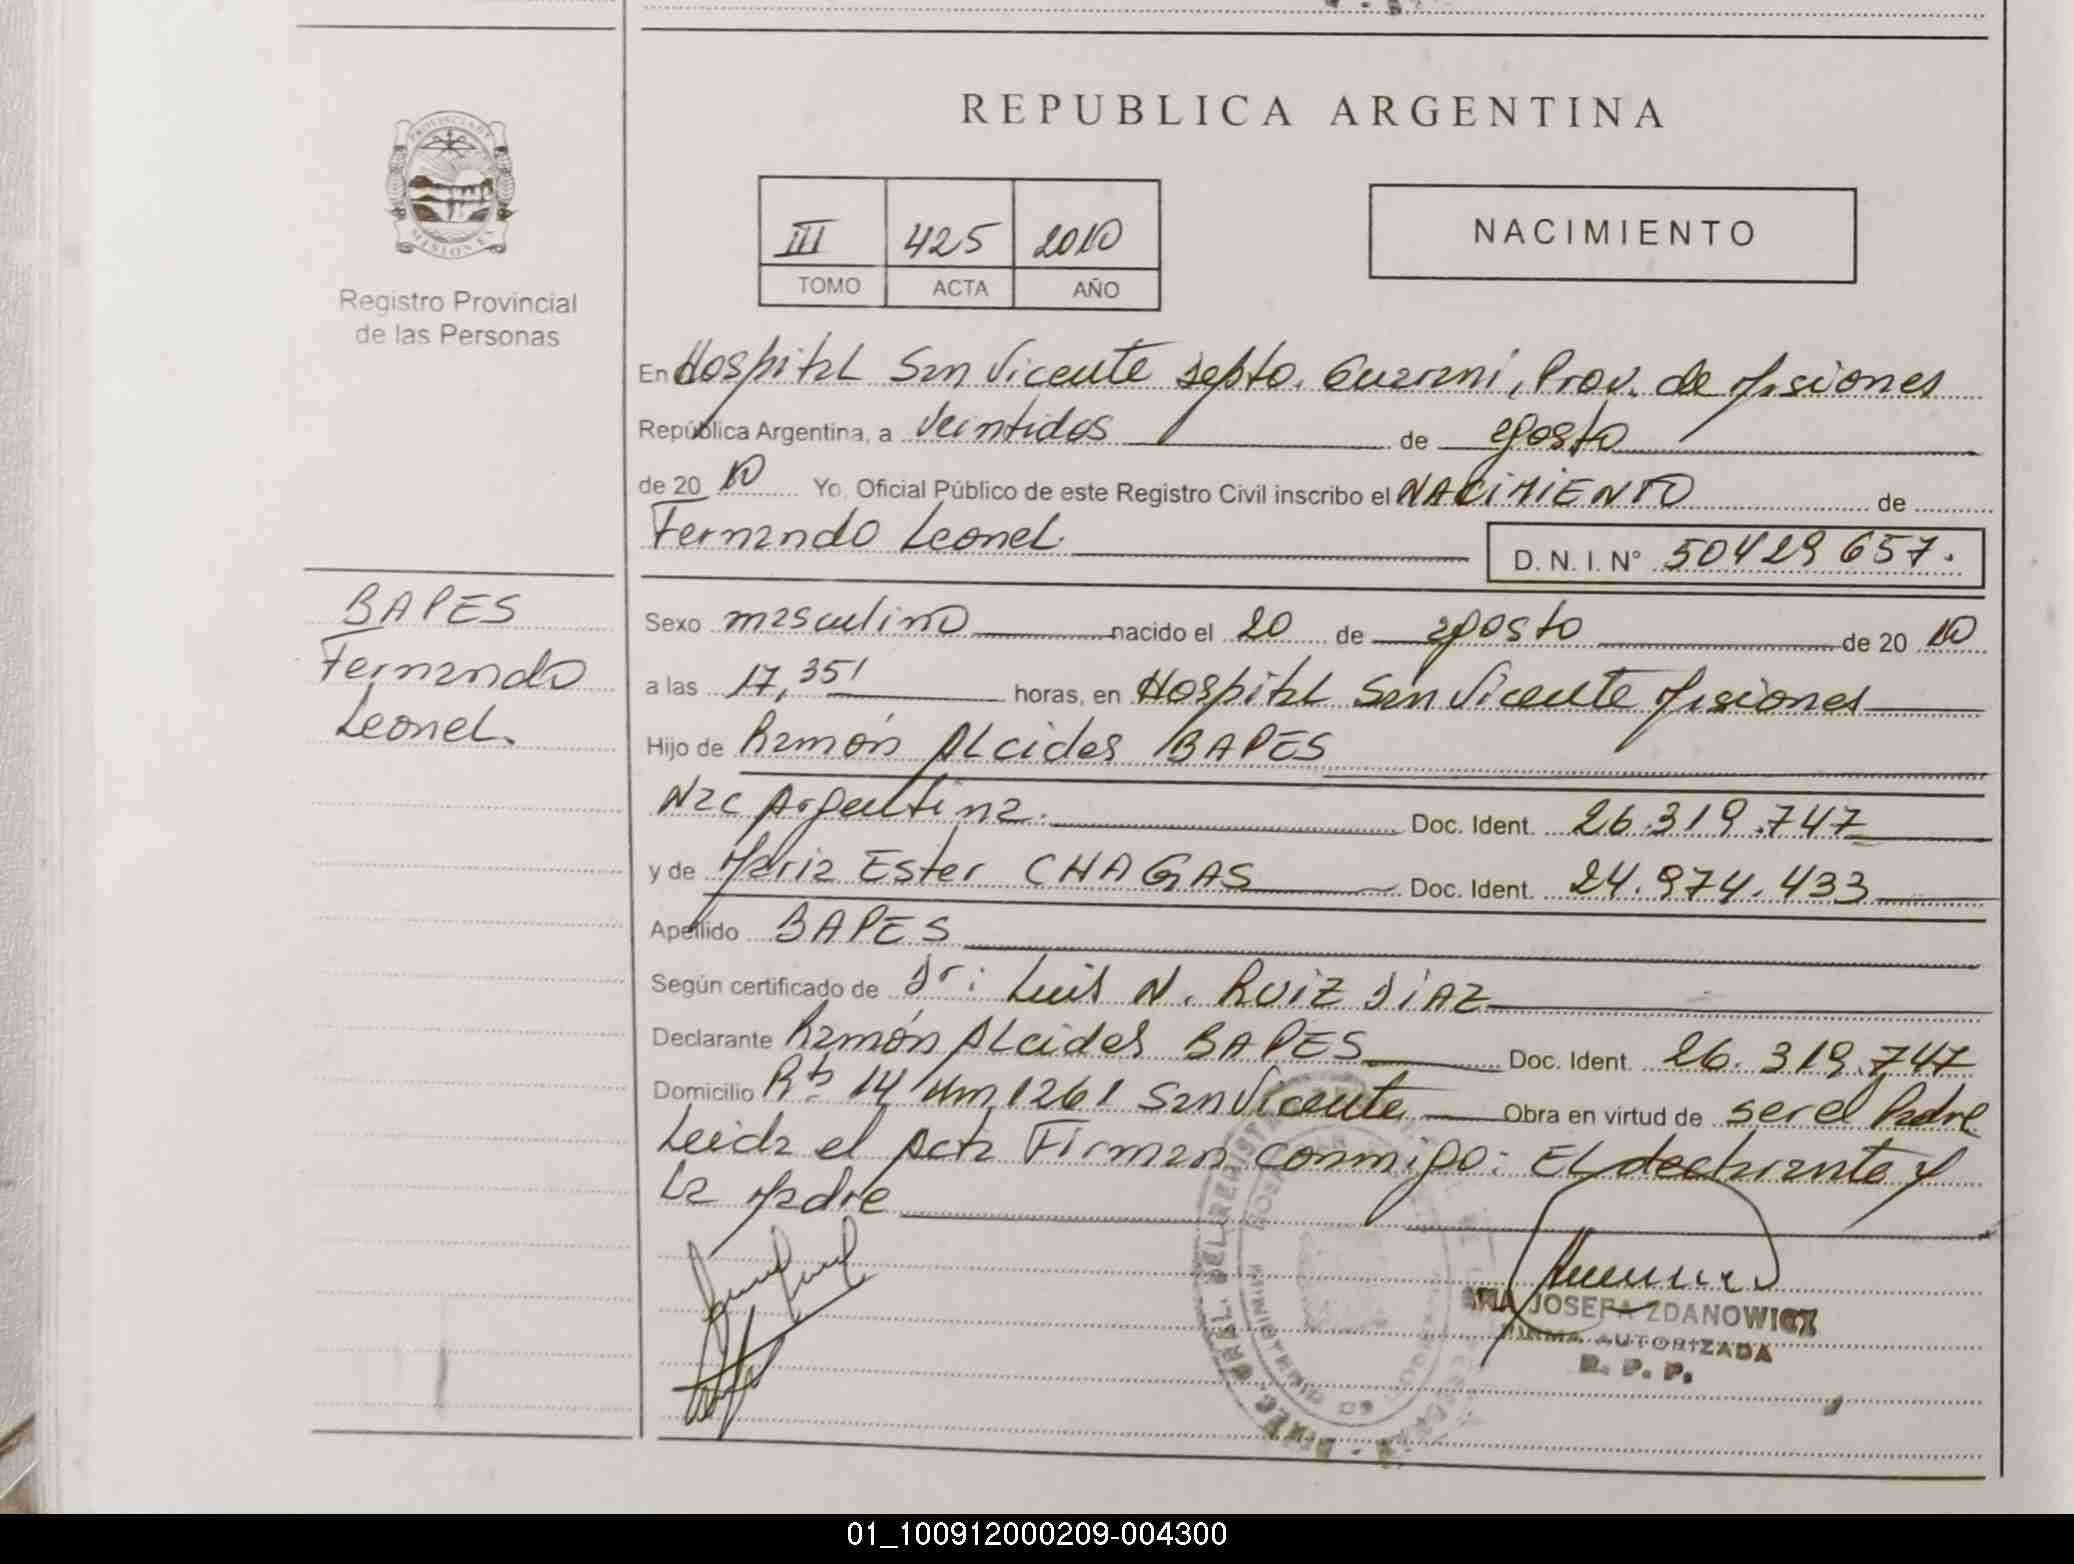 REPUBLICA ARGENTINA
PROVINCIA DE
MISIONES
Registro Provincial
de las Personas
III 425 2010
TOMO ACTA AÑO
NACIMIENTO
En Hospital San Vicente Depto. Guaraní, Prov. de Misiones
República Argentina, a Veintidos de agosto
de 2010 Yo, Oficial Público de este Registro Civil inscribo el NACIMIENTO de
Fernando Leonel.
D. N. I. N° 50429657.
BAPES
Fernando
Leonel.
Sexo masculino nacido el 20 de agosto de 2010
a las 17,35' horas, en Hospital San Vicente Misiones
Hijo de Ramón Alcides BAPES
Nac Argentina. Doc. Ident. 26.319.747
y de Maria Ester CHAGAS Doc. Ident. 24.974.433
Apellido BAPES
Según certificado de Dr: Luis N. RUIZ DIAZ
Declarante Ramón Alcides BAPES Doc. Ident. 26.319.747
Domicilio Rta 14 Km 1261 San Vicente Obra en virtud de ser el Padre
Leida el Acta Firman conmigo: El declarante y
La Madre
JOSEFA ZDANOWICZ
FIRMA AUTORIZADA
R. P. P.
01_100912000209-004300